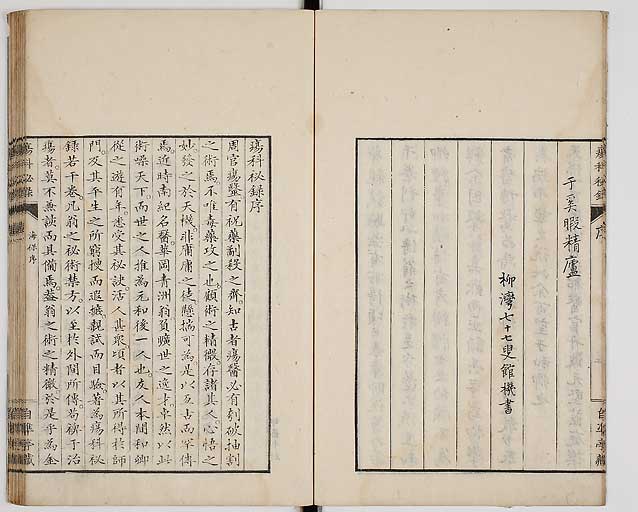 瘍科秘錄
序
自準亭藏
于奚暇精廬
柳灣七十七叟館機書
瘍科秘錄序
周官瘍醫有祝藥劀殺之齊知古者瘍醫必有刳破抽割
之術焉不唯毒藥攻之也顧術之精微存諸其人心悟之
妙發之於天機非庸庸之徒懸揣可為是以亙古而罕傳
焉近時南紀名醫華岡青洲翁負曠世之逸才卓然以此
術噪天下而世之人推為元和後一人也友人本間和卿
從之遊有年悉受其秘訣活人甚眾頃者以其所得於師
門及其平生之所窮搜而遐摭親試而目驗著為瘍科秘
錄若干卷凡翁之秘術禁方以至於外間所傳苟裨于治
瘍者莫不兼該而具備焉蓋翁之術之精微於是乎為全
瘍科秘錄
海保序
自準亭藏